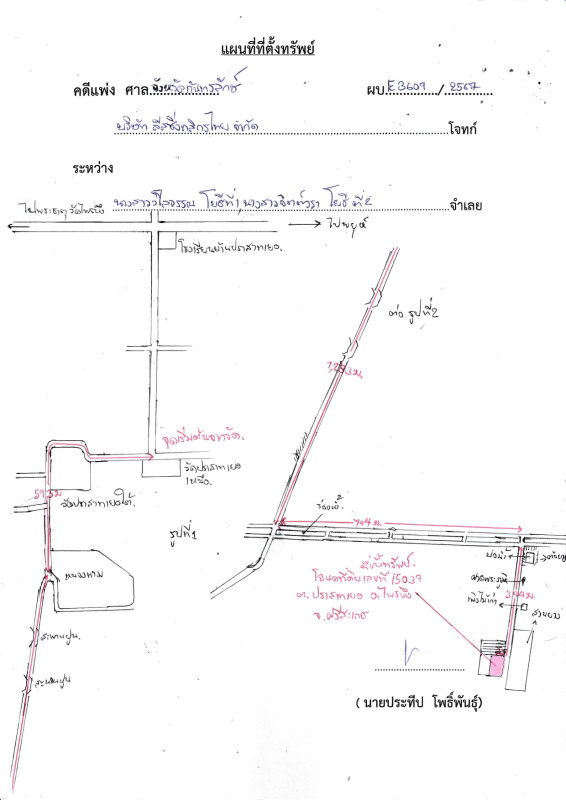 แผนที่ที่ตั้งทรัพย์
คดีแพ่ง ศาล จังหวัดกันทรลักษ์ ผบ E3609 / 2567
บริษัท ลีสซิ่งกสิกรไทย จำกัด โจทก์
ระหว่าง
นางสาววิไลวรรณ โยธี ที่ 1, นางสาว โยธี ที่ 2 จำเลย
ไปพระธาตุ วัดไพรบึง
ไปพยุห์
โรงเรียนบ้านปราสาทเยอ.
ต่อ รูปที่2
จุดเริ่มต้นจากวัด.
วัดปราสาทเยอ
เหนือ.
วัดปราสาทเยอใต้.
รูปที่1
ร่องน้ำ
704 ม.
หนองทาม
สะพานปูน.
สะพานปูน
ที่ตั้งทรัพย์.
โฉนดที่ดินเลขที่ 15039
ต. ปราสาทเยอ อ. ไพรบึง
จ. ศรีสะเกษ
บ่อน้ำ
ศาลพระภูมิ
เพิงไม้เก่า
สวนยาง
(นายประทีป โพธิ์พันธุ์)